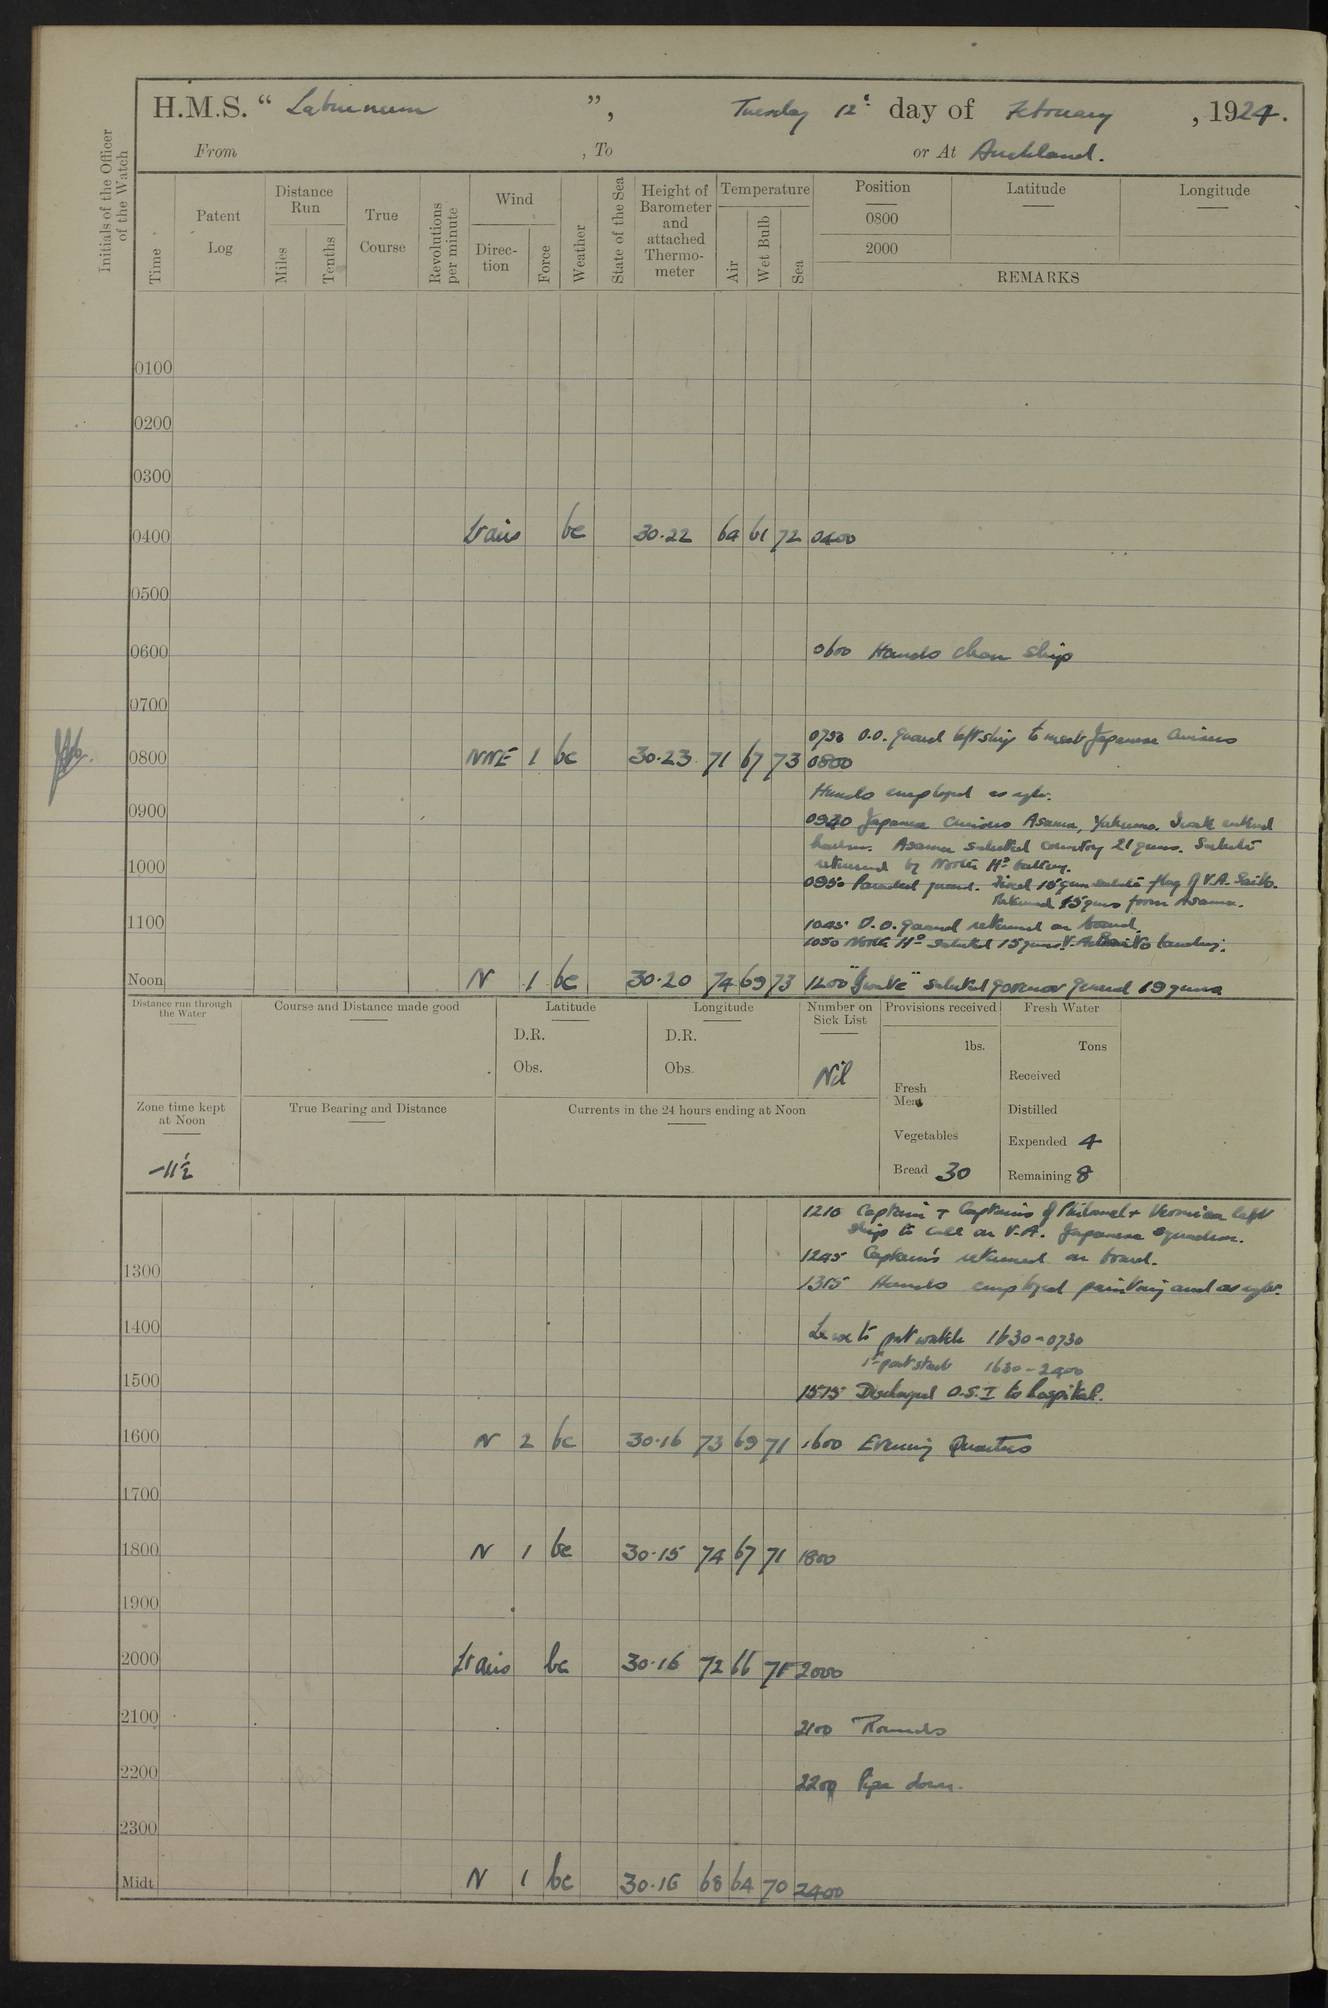 H.M.S. “ Laburnum ”, Tuesday 12th day of February , 1924.
From , To or At Auckland.
Initials of the Officer of the Watch
Time
Patent Log
Distance Run
Miles
Tenths
True Course
Revolutions per minute
Wind
Direction
Force
Weather
State of the Sea
Height of Barometer and attached Thermometer
Temperature
Air
Wet Bulb
Sea
Position Latitude Longitude
0800
2000
REMARKS
0100
0200
0300
0400 Lt airs bc 30.22 64 61 72 0400
0500
0600 0600 Hands clean ship
0700
0750 O.O. guard left ship to meet Japanese Cruisers
0800 NNE 1 bc 30.23 71 67 73 0800
Hands employed as reqte.
0900 0930 Japanese Cruisers Asama, Yakumo, Iwate entered
harbour. Asama saluted country 21 guns. Salute
returned by North Hd battery.
1000 0950 Paraded guard. Fired 15 gun salute flag of V.A. Saito.
Returned 15 guns from Asama.
1100 1045 O.O. guard returned on board.
1050 North Hd saluted 15 guns V. Ad Saito landing.
Noon N 1 bc 30.20 74 69 73 1200 "Iwate" saluted Governor General 19 guns
Distance run through the Water
Course and Distance made good
Latitude
D.R.
Obs.
Longitude
D.R.
Obs.
Number on Sick List
Nil
Provisions received
lbs.
Fresh Meat
Vegetables
Bread 30
Fresh Water
Tons
Received
Distilled
Expended 4
Remaining 8
Zone time kept at Noon
-11½
True Bearing and Distance
Currents in the 24 hours ending at Noon
1210 Captain + Captains of Philomel + Veronica left
ship to call on V.A. Japanese Squadron.
1245 Captains returned on board.
1300 1315 Hands employed painting and as reqte.
1400 Leave to port watch 1630-0730
1st part starb 1630-2400
1500 1515 Discharged O.S. I to hospital.
1600 N 2 bc 30.16 73 69 71 1600 Evening Quarters
1700
1800 N 1 bc 30.15 74 67 71 1800
1900
2000 Lt airs bc 30.16 72 66 71 2000
2100 2100 Rounds
2200 2200 Pipe down.
2300
Midt. N 1 bc 30.16 68 64 70 2400